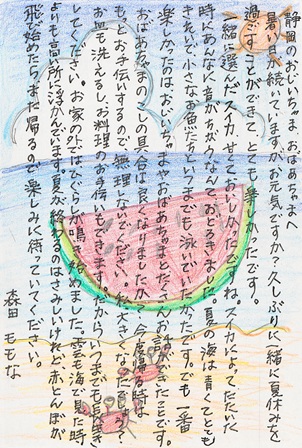 静岡のおじいちゃま、おばあちゃまへ
暑い日が続いていますがお元気ですか？久しぶりに一緒に夏休みを
過ごすことができて、とても楽しかったです。
一緒に選んだスイカ、甘くておいしかったですね。スイカによってたたいた
時にあんなに音がちがうなんて、おどろきました。夏の海は青くてとても
きれいで、小さなお宿だといつまでも泳いでいたかったです。でも一番
楽しかったのは、おじいちゃまやおばあちゃまとたくさんお話ができたことです。
おばあちゃまのこしの具合は良くなりましたか？今度帰る時は
もっとお手伝いするので、無理しないでください。私、大きくなったでしょう？
お皿も洗えるし、お料理のお手伝いもできます。だからいつまでも元気で
してください。お家の外ではひぐらしが鳴き始めました。雲も海で見た時
よりも高い所に浮かんでいます。夏が終わるのはさみしいけれど、赤とんぼが
飛び始めたら、また帰るので楽しみに待っていてください。
森田 ももな